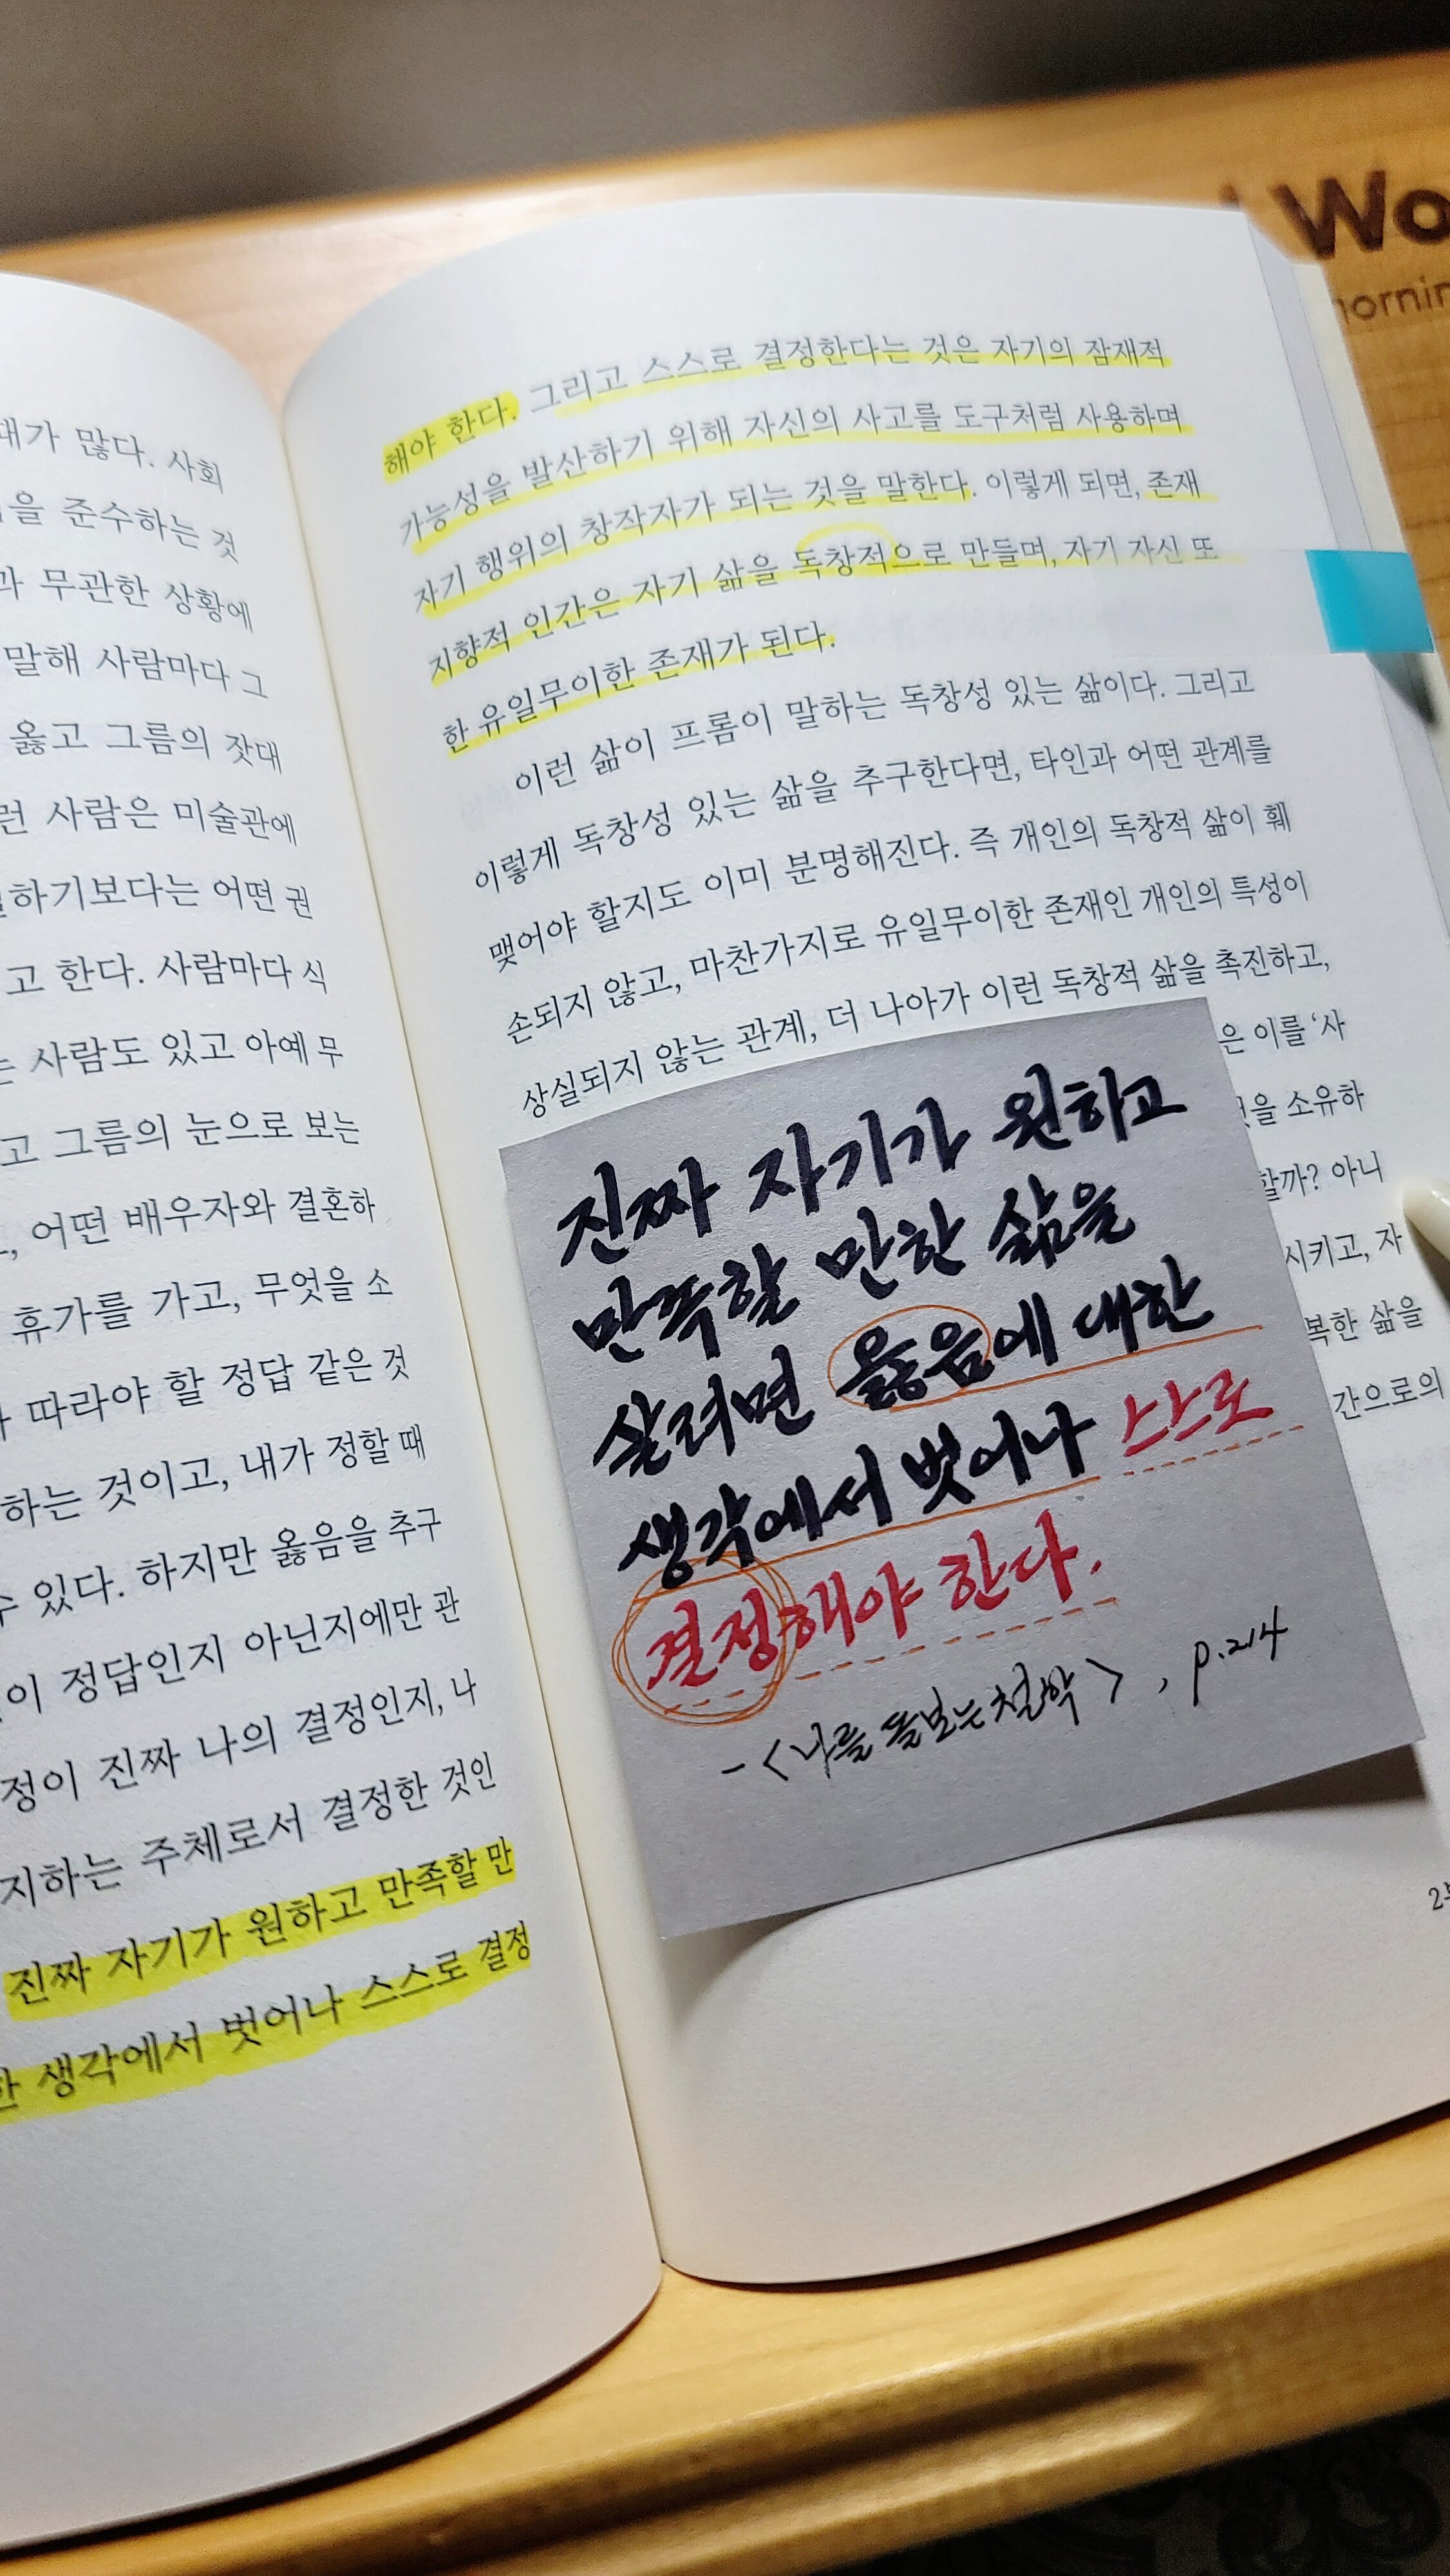 Wo
대가 많다. 사회
을 준수하는 것
과 무관한 상황에
말해 사람마다 그
옳고 그름의 잣대
런 사람은 미술관에
하기보다는 어떤 권
고 한다. 사람마다 식
는 사람도 있고 아예 무
고 그름의 눈으로 보는
, 어떤 배우자와 결혼하
휴가를 가고, 무엇을 소
따라야 할 정답 같은 것
하는 것이고, 내가 정할 때
수 있다. 하지만 옳음을 추구
이 정답인지 아닌지에만 관
정이 진짜 나의 결정인지, 나
지하는 주체로서 결정한 것인
진짜 자기가 원하고 만족할 만
한 생각에서 벗어나 스스로 결정
해야 한다. 그리고 스스로 결정한다는 것은 자기의 잠재적
가능성을 발산하기 위해 자신의 사고를 도구처럼 사용하며
자기 행위의 창작자가 되는 것을 말한다. 이렇게 되면, 존재
지향적 인간은 자기 삶을 독창적으로 만들며, 자기 자신 또
한 유일무이한 존재가 된다.
이런 삶이 프롬이 말하는 독창성 있는 삶이다. 그리고
이렇게 독창성 있는 삶을 추구한다면, 타인과 어떤 관계를
맺어야 할지도 이미 분명해진다. 즉 개인의 독창적 삶이 훼
손되지 않고, 마찬가지로 유일무이한 존재인 개인의 특성이
상실되지 않는 관계, 더 나아가 이런 독창적 삶을 촉진하고,
은 이를 ‘사
것을 소유하
할까? 아니
시키고, 자
복한 삶을
간으로의
진짜 자기가 원하고
만족할 만한 삶을
살려면 옳음에 대한
생각에서 벗어나 스스로
결정해야 한다.
- <나를 돌보는 철학>, p.214